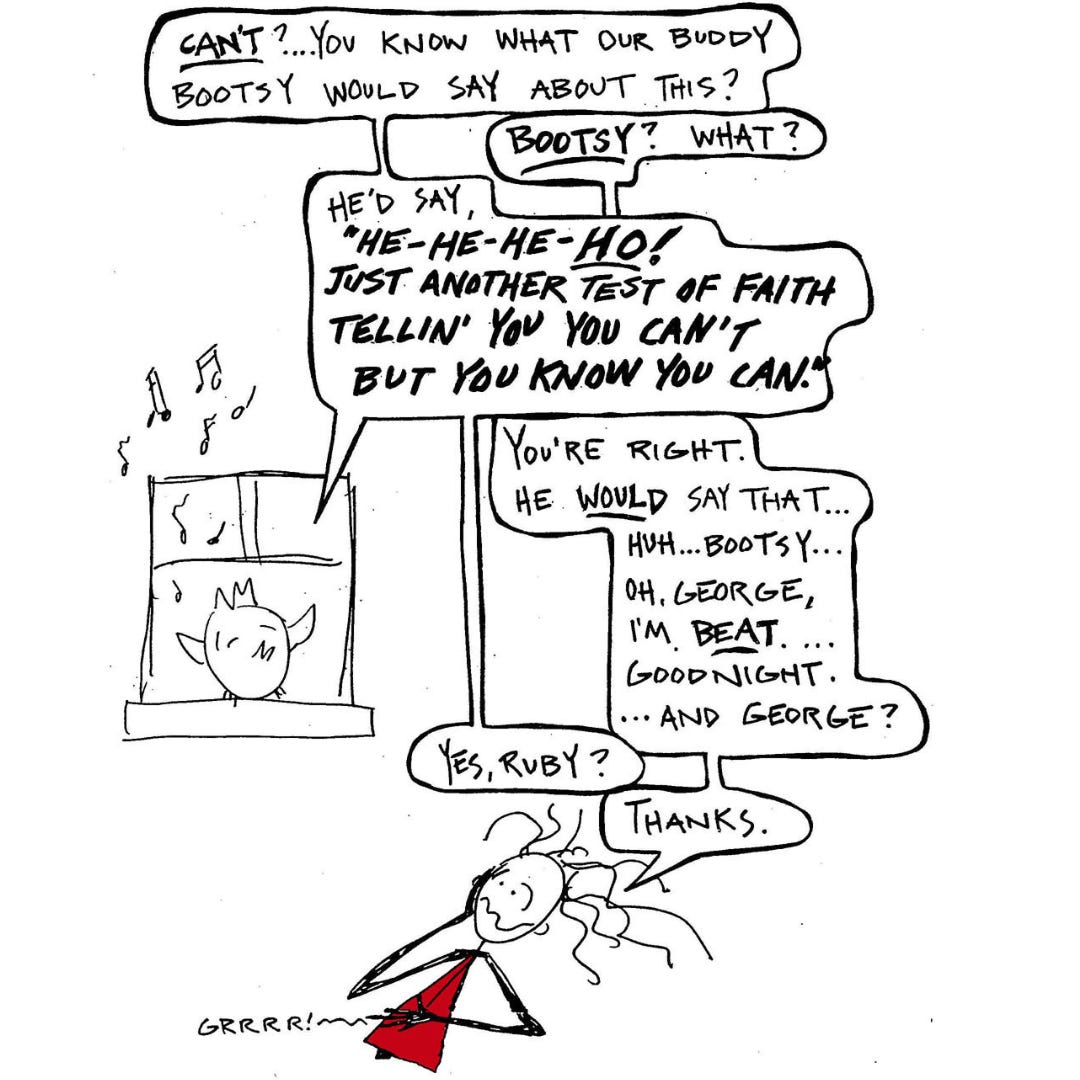 CAN'T?...YOU KNOW WHAT OUR BUDDY
BOOTSY WOULD SAY ABOUT THIS?
BOOTSY? WHAT?
HE'D SAY,
"HE-HE-HE-HO!
JUST ANOTHER TEST OF FAITH
TELLIN' YOU YOU CAN'T
BUT YOU KNOW YOU CAN."
YOU'RE RIGHT.
HE WOULD SAY THAT...
HUH...BOOTSY...
OH, GEORGE,
I'M BEAT. ...
GOODNIGHT.
...AND GEORGE?
YES, RUBY?
THANKS.
GRRRR!